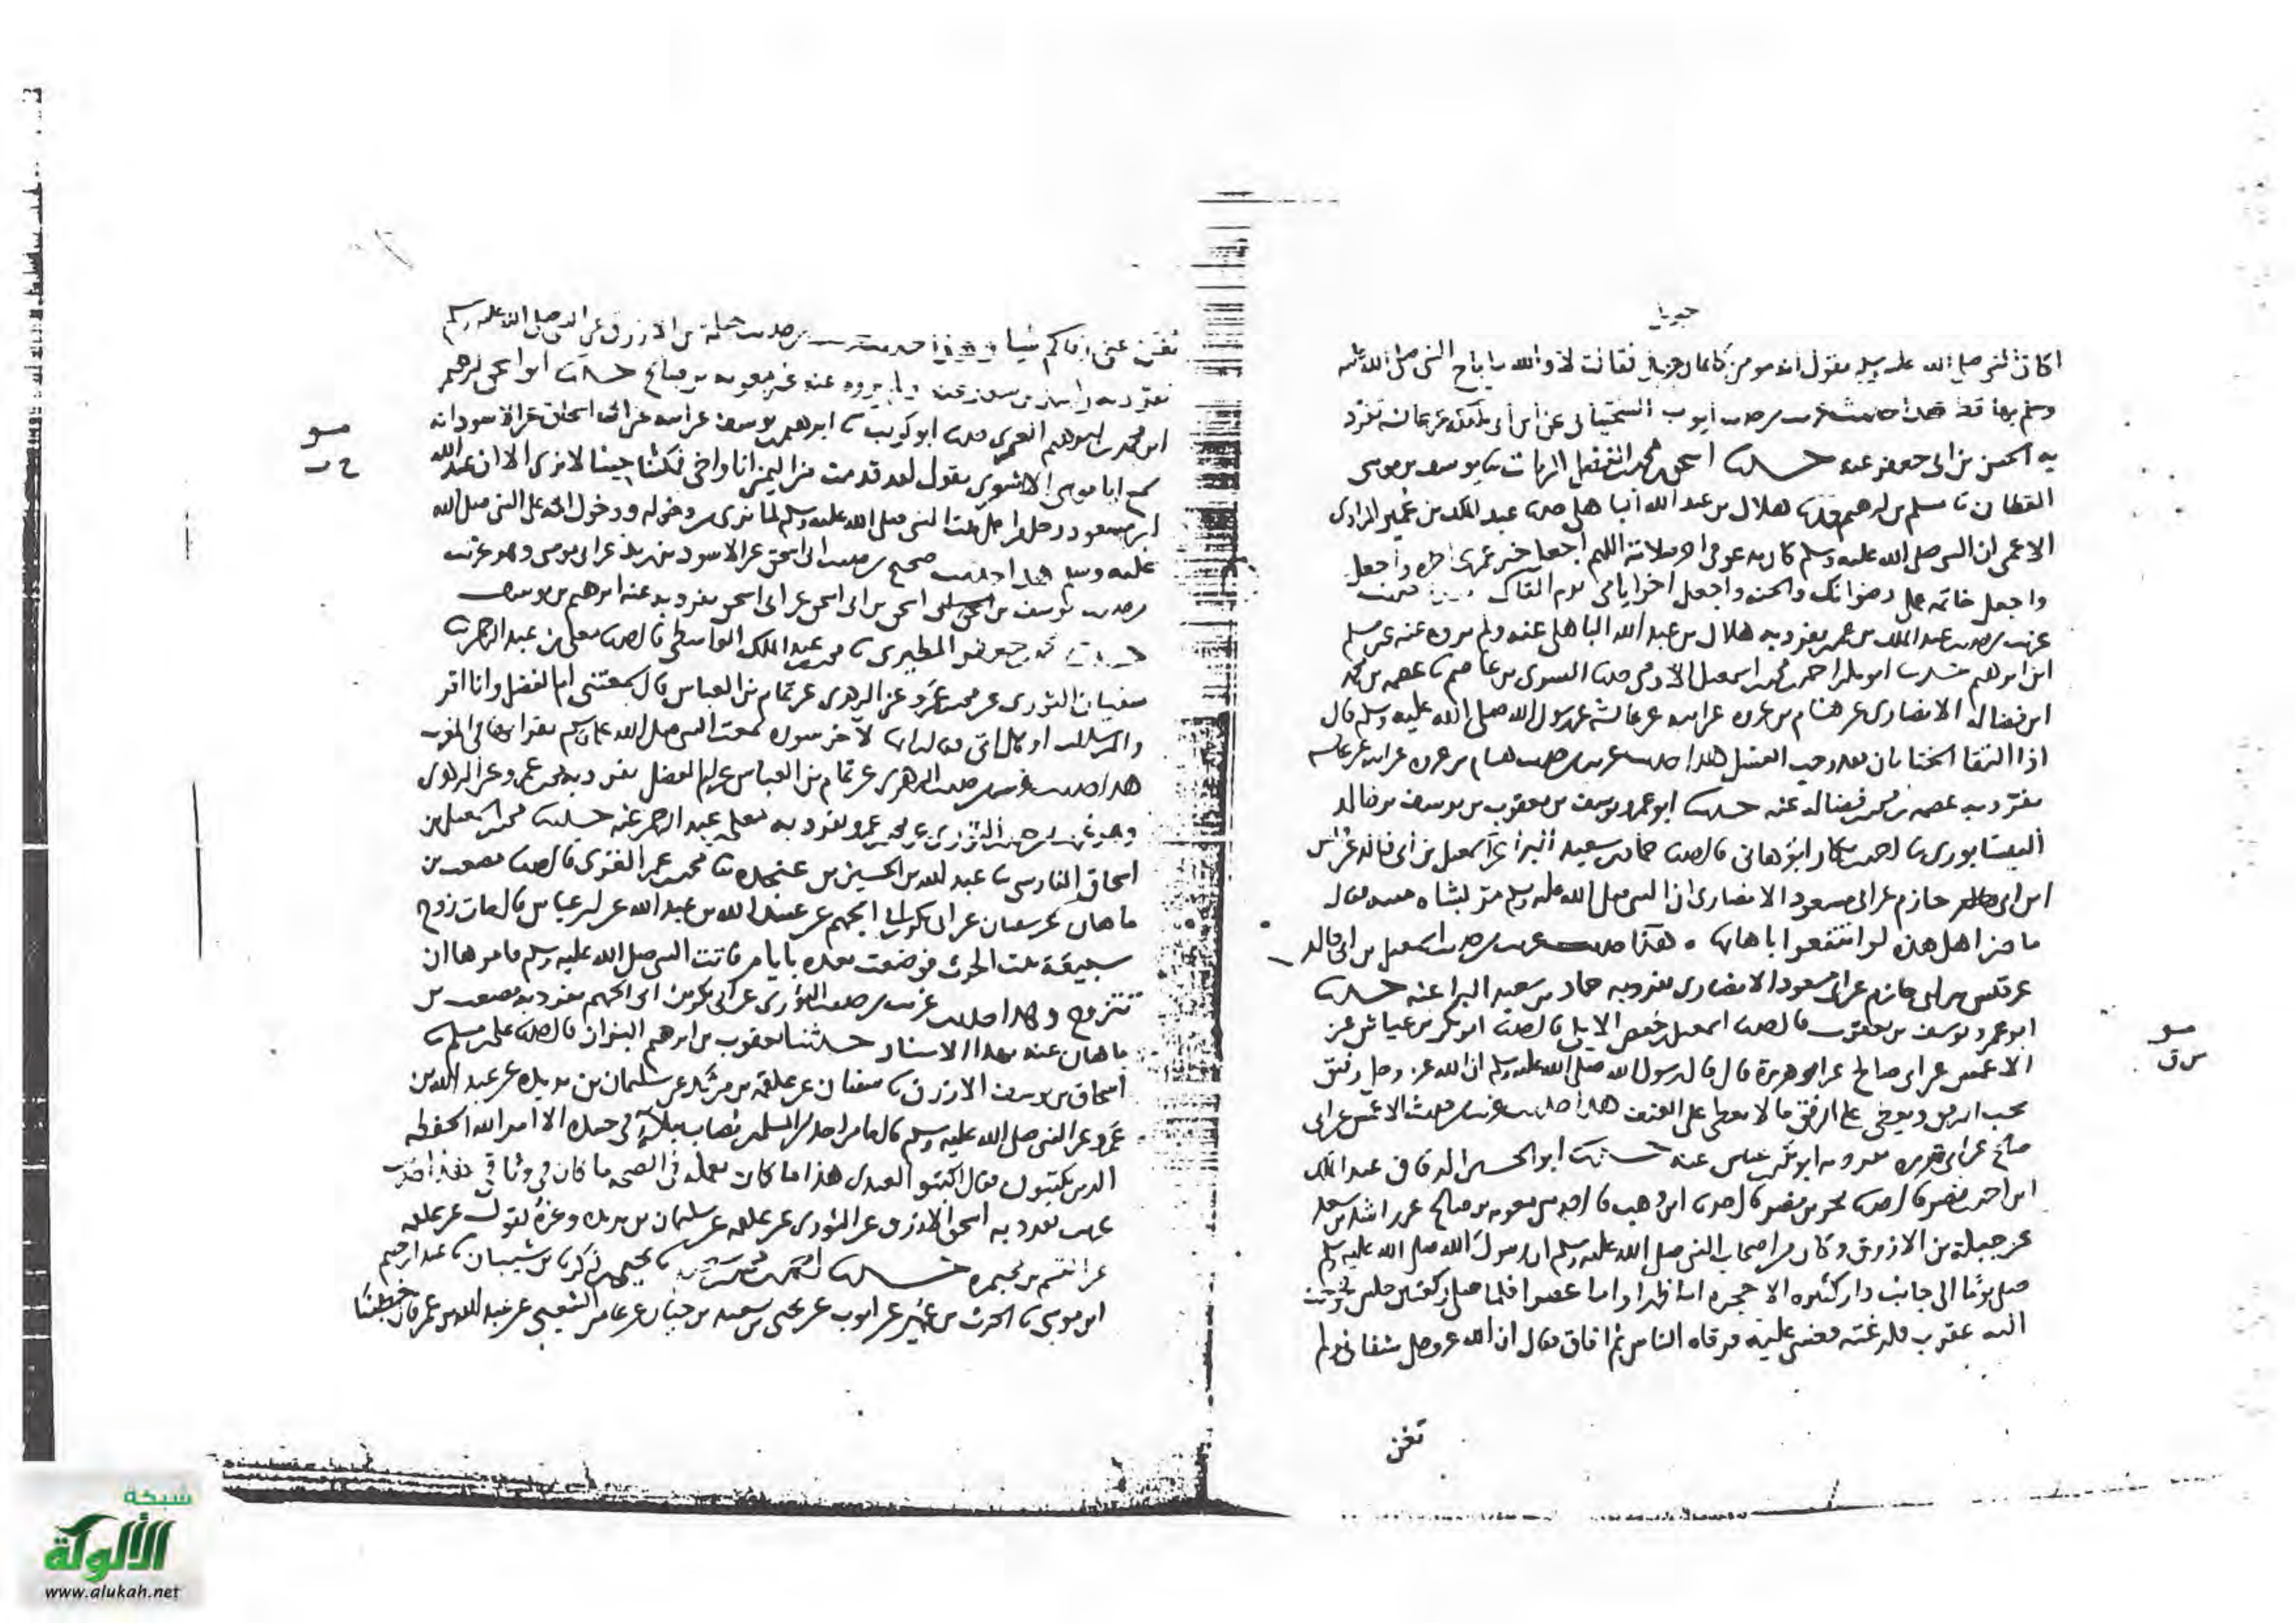 جبريل
اكان النبى صلى الله عليه وسلم يقول انه مومن كايمان جبريل فقالت لا والله ما باح النبى صلى الله عليه
وسلم بهذا قط هذا حديث غريب من حديث ايوب السختيانى عن ابن ابى مليكة عن عائشة تفرد
به الحسن بن ابى جعفر عنه حدثنا اسحق بن محمد بن الفضل الزيات نا يوسف بن موسى
القطان نا مسلم بن ابرهيم حدثنا هلال بن عبد الله الباهلى حدثنا عبد الملك بن عمير
ان النبى صلى الله عليه وسلم كان يدعو فى صلاته اللهم اجعل خير عمرى اخره واجعل
واجعل خاتمة عملى رضوانك والجنه واجعل اخر ايامى يوم القاك
غريب من حديث عبد الملك بن عمير تفرد به هلال بن عبد الله الباهلى عنه ولم يروه عنه غير مسلم
ابن ابرهيم حدثنا احمد بن محمد بن اسمعيل الادمى حدثنا السرى بن عاصم نا عصمه بن محمد
ابن فضاله الانصارى عن هشام بن عروه عن ابيه عن عائشه عن رسول الله صلى الله عليه وسلم قال
اذا التقا الختانان فقد وجب الغسل هذا حديث غريب من حديث هشام بن عروه عن ابيه عن عائشه
تفرد به عصمه بن محمد بن فضاله عنه حدثنا ابو عمرو يوسف بن يعقوب بن يوسف بن خالد
النيسابورى نا احمد بن بكار ابو هانى قال حدثنا حماد بن سعيد البرا عن اسمعيل بن ابى خالد عن قيس
ابن ابى حازم عن ابى مسعود الانصارى ان النبى صلى الله عليه وسلم مر بشاه ميته فقال
ما ضر اهل هذه لو انتفعوا باهابها هذا حديث غريب من حديث اسمعيل بن ابى خالد
عن قيس بن ابى حازم عن ابى مسعود الانصارى تفرد به حماد بن سعيد البرا عنه حدثنا
ابو عمرو يوسف بن يعقوب قال حدثنا اسمعيل بن حفص الابلى قال حدثنا ابو بكر بن عياش عن
الاعمش عن ابى صالح عن ابى هريرة قال قال رسول الله صلى الله عليه وسلم ان الله عز وجل رفيق
يحب الرفق ويعطى على الرفق ما لا يعطى على العنف هذا حديث غريب من حديث الاعمش عن ابى
صالح عن ابى هريره تفرد به ابو بكر بن عياش عنه حدثنا ابو الحسن الدقاق عبد الملك
ابن احمد بن نصر قال حدثنا بحر بن نصر قال حدثنا ابن وهب قال اخبرنى معويه بن صالح عن راشد بن سعد
عن جبلة بن الازرق وكان من اصحاب النبى صلى الله عليه وسلم ان رسول الله صلى الله عليه وسلم
صلى يوما الى جانب دار كثيره الاحجره اما ظهرا واما عصرا فلما صلى ركعتين جلس خرجت
اليه عقرب فلدغته فغشى عليه فرقاه الناس ثم افاق فقال ان الله عز وجل شفانى ولم
تغن
مو
س ق
تغن عنى رقاكم شيا حديث من حديث جبلة بن الازرق عن النبى صلى الله عليه وسلم
تفرد به راشد بن سعد عنه ولم يروه عنه غير معويه بن صالح حدثنا ابو ابرهيم
ابن محمد بن ابرهيم العمرى حدثنا ابو كريب نا ابرهيم بن يوسف عن ابيه عن ابى اسحاق عن الاسود انه
سمع ابا موسى الاشعرى يقول لقد قدمت من اليمن انا واخى فمكثنا حينا لا نرى الا ان عبد الله
ابن مسعود رجلا من اهل بيت النبى صلى الله عليه وسلم لما نرى من دخوله ودخول امه على النبى صلى الله
عليه وسلم هذا حديث صحيح من حديث ابى اسحق عن الاسود بن يزيد عن ابى موسى وهو غريب
من حديث يوسف بن اسحق بن ابى اسحق عن ابى اسحق تفرد به عنه ابرهيم بن يوسف
حدثنا محمد بن جعفر المطيرى نا محمد بن عبد الملك الواسطى قال حدثنا معلى بن عبد الرحمن نا
سفيان الثورى عن محمد بن عمرو عن الزهرى عن تمام بن العباس قال سمعتنى ام الفضل وانا اقرا
والمرسلات سمعت النبى صلى الله عليه وسلم يقرا بها فى المغرب
هذا حديث غريب من حديث الزهرى عن تمام بن العباس عن ام الفضل تفرد به محمد بن عمرو عن الزهرى
وهو غريب من حديث الثورى عن محمد بن عمرو تفرد به معلى بن عبد الرحمن عنه حدثنا محمد بن اسمعيل بن
اسحاق الفارسى نا عبد الله بن الحسين بن نا محمد بن عمر الغزى قال حدثنا مصعب بن
ماهان عن سفيان عن ابى بكر بن ابى الجهم عن عبيد الله بن عبد الله عن ابن عباس قال مات زوج
سبيعة بنت الحرث فوضعت بعده بايام فاتت النبى صلى الله عليه وسلم فامرها ان
تتزوج وهذا حديث غريب من حديث الثورى عن ابى بكر بن ابى الجهم تفرد به مصعب بن
ماهان عنه بهذا الاسناد حدثنا يعقوب بن ابرهيم البزاز قال حدثنا على بن مسلم نا
اسحاق بن يوسف الازرق نا سفيان عن علقمه بن مرثد عن سليمان بن بريده عن عبد الله بن
عمرو عن النبى صلى الله عليه وسلم قال ما من احد من المسلمين يصاب ببلاء فى جسده الا امر الله الحفظه
الذين يكتبون فقال اكتبوا لعبدى هذا ما كان يعمله فى الصحه ما كان فى وثاقى هذا حديث
غريب تفرد به اسحق الازرق عن الثورى عن علقمه عن سليمان بن بريده وغيره يقول عن علقمه
عن القسم بن مخيمره حدثنا نا يحيى بن زكريا بن شيبان نا عبد الرحيم
ابن موسى نا الحرث بن عمير عن ايوب عن يحيى بن سعيد بن حيان عن عامر الشعبى عن عبد الله بن عمر قال خطبنا
مو
شبكة
الألوكة
www.alukah.net